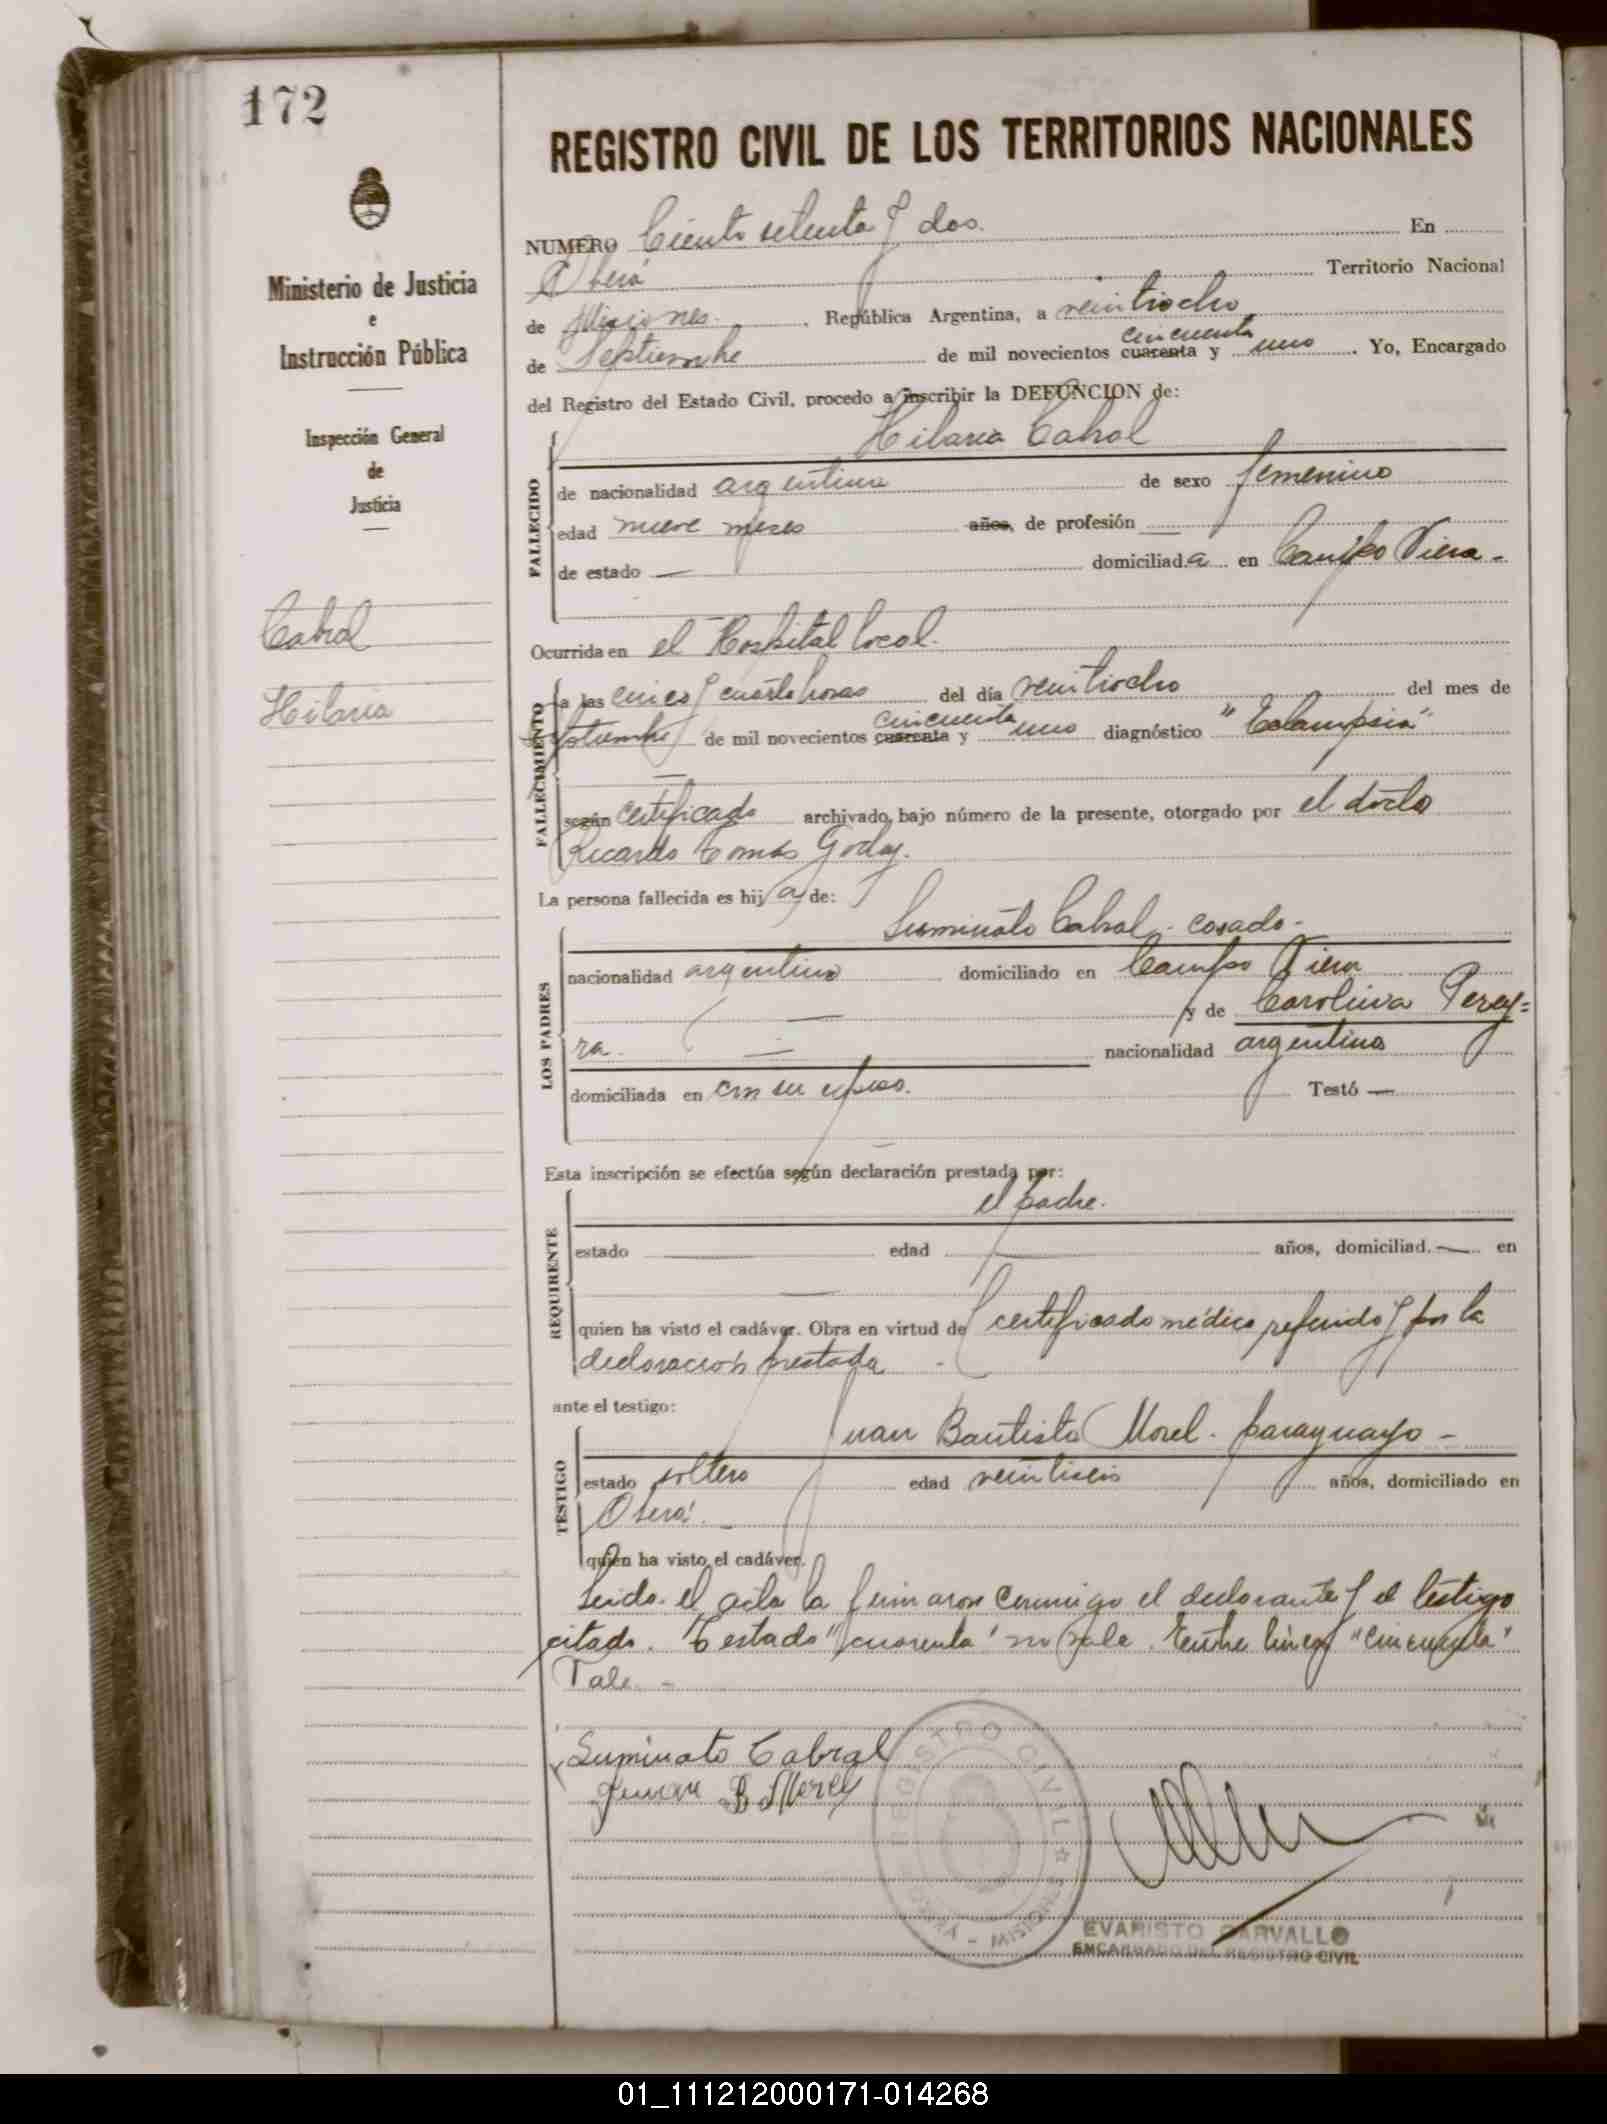 172
REGISTRO CIVIL DE LOS TERRITORIOS NACIONALES
Ministerio de Justicia
e
Instrucción Pública
Inspección General
de
Justicia
Cabral
Hilaria
NUMERO Ciento setenta y dos. En
Oberá Territorio Nacional
de Misiones. República Argentina, a veintiocho
cincuenta
de Septiembre de mil novecientos cuarenta y uno. Yo, Encargado
del Registro del Estado Civil, procedo a inscribir la DEFUNCION de:
Hilaria Cabral
FALLECIDO
de nacionalidad argentina de sexo femenino
edad nueve meses años, de profesión —
de estado — domiciliada en Campo Viera -
Ocurrida en el Hospital local.
FALLECIMIENTO
a las cinco y cuarto horas del día veintiocho del mes de
cincuenta
septiembre de mil novecientos cuarenta y uno diagnóstico "Eclampsia"
según certificado archivado bajo número de la presente, otorgado por el doctor
Ricardo Tomás Godoy.
La persona fallecida es hija de:
Suminato Cabral - casado -
LOS PADRES
nacionalidad argentino domiciliado en Campo Viera
— y de Carolina Perey=
ra. — nacionalidad argentina
domiciliada en con su esposo. Testó —
Esta inscripción se efectúa según declaración prestada por:
el padre.
REQUIRENTE
estado — edad — años, domiciliad. — en
—
quien ha visto el cadáver. Obra en virtud de certificado médico referido y por la
declaración prestada
ante el testigo:
Juan Bautista Morel - paraguayo -
TESTIGO
estado soltero edad veintiseis años, domiciliado en
Oberá. -
quien ha visto el cadáver.
Leida el acta la firmaron conmigo el declarante y el testigo
citado. Testado "cuarenta" no vale. Entre líneas "cincuenta"
Vale. -
Suminato Cabral
Juan B Morel
REGISTRO CIVIL
OBERA - MISIONES
EVARISTO CARVALLO
ENCARGADO DEL REGISTRO CIVIL
01_111212000171-014268